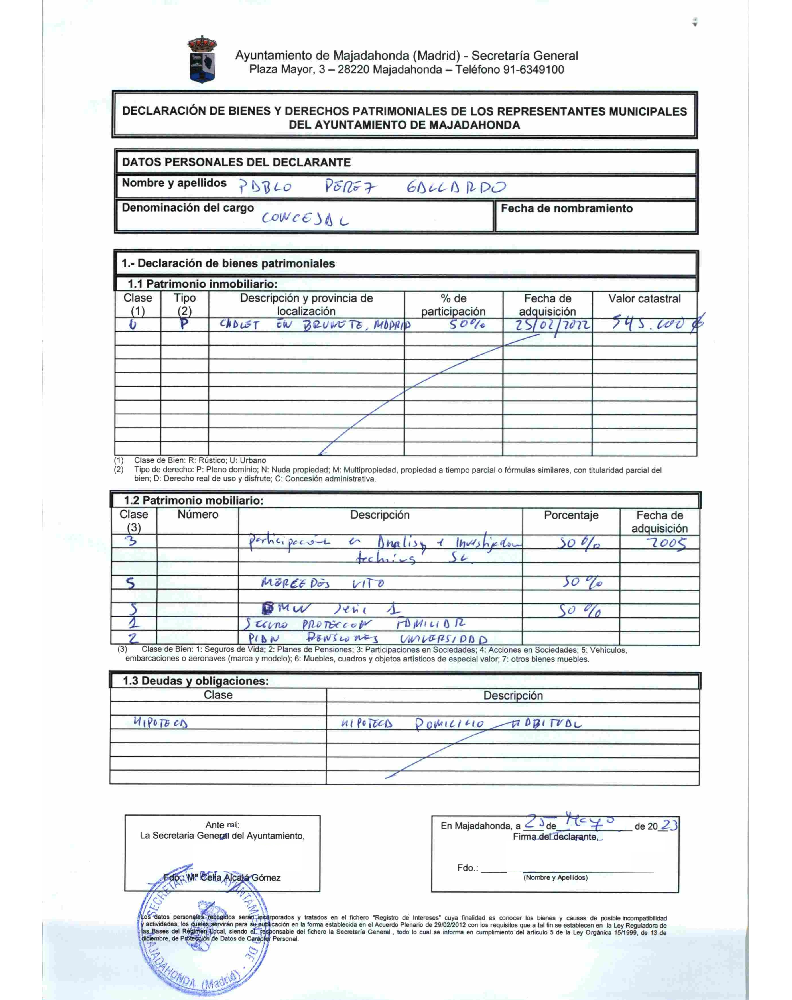 Ayuntamiento de Majadahonda (Madrid) - Secretaría General
Plaza Mayor, 3 – 28220 Majadahonda – Teléfono 91-6349100
DECLARACIÓN DE BIENES Y DERECHOS PATRIMONIALES DE LOS REPRESENTANTES MUNICIPALES
DEL AYUNTAMIENTO DE MAJADAHONDA
DATOS PERSONALES DEL DECLARANTE
Nombre y apellidos PABLO PÉREZ GALLARDO
Denominación del cargo CONCEJAL Fecha de nombramiento
1.- Declaración de bienes patrimoniales
1.1 Patrimonio inmobiliario:
Clase (1) Tipo (2) Descripción y provincia de localización % de participación Fecha de adquisición Valor catastral
U P CHALET EN BRUNETE, MADRID 50% 25/02/2022
(1) Clase de Bien: R: Rústico; U: Urbano
(2) Tipo de derecho: P: Pleno dominio; N: Nuda propiedad; M: Multipropiedad, propiedad a tiempo parcial o fórmulas similares, con titularidad parcial del
bien; D: Derecho real de uso y disfrute; C: Concesión administrativa.
1.2 Patrimonio mobiliario:
Clase (3) Número Descripción Porcentaje Fecha de adquisición
3 participación en Analisis e Investigacion 50% 2005
SL
5 MERCEDES VITO 50%
5 BMW Serie 1 50%
1 SEGURO PROTECCION FAMILIAR
2 PLAN PENSIONES UNIVERSIDAD
(3) Clase de Bien: 1: Seguros de Vida; 2: Planes de Pensiones; 3: Participaciones en Sociedades; 4: Acciones en Sociedades; 5: Vehículos,
embarcaciones o aeronaves (marca y modelo); 6: Muebles, cuadros y objetos artísticos de especial valor; 7: otros bienes muebles.
1.3 Deudas y obligaciones:
Clase Descripción
HIPOTECA HIPOTECA DOMICILIO HABITUAL
Ante mí:
La Secretaria General del Ayuntamiento,
Fdo.: Mª Celia Alcalá Gómez
En Majadahonda, a 25 de Mayo de 2023
Firma del declarante,
Fdo.:
(Nombre y Apellidos)
Los datos personales recogidos serán incorporados y tratados en el fichero "Registro de Intereses" cuya finalidad es conocer los bienes y causas de posible incompatibilidad
y actividades, los cuales servirán para su publicación en la forma establecida en el Acuerdo Plenario de 29/02/2012 con los requisitos que a tal fin se establecen en la Ley Reguladora de
las Bases del Régimen Local, siendo el responsable del fichero la Secretaría General, todo lo cual se informa en cumplimiento del artículo 5 de la Ley Orgánica 15/1999, de 13 de
diciembre, de Protección de Datos de Carácter Personal.
MAJADAHONDA (Madrid)